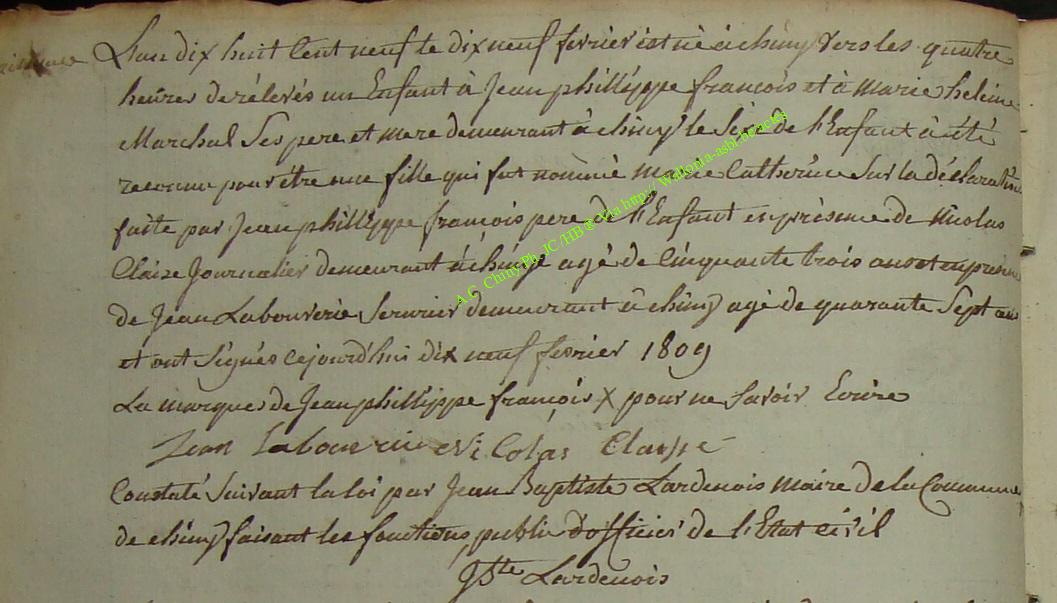 naissance L'an dix huit Cent neuf le dix neuf fevrier est né à chiny vers les quatre
heures de rélevés un Enfant à Jean phillippe françois et à Marie helene
Marchal Ses pere et mere demeurant à chiny le Sexe de l'Enfant à été
reconnu pour être une fille qui fut nommé marie Catherine Sur la déclaration
faite par Jean phillippe françois pere de l'Enfant en présence de Nicolas
Claise Journalier demeurant à chiny agé de Cinquante trois ans et en présence
de Jean Labouverie Serurier demeurant à chiny agé de quarante Sept ans
et ont Signés cejourd'hui dix neuf fevrier 1809
La marque de Jean phillippe françois X pour ne Savoir Ecrire
Jean Labouverie Nicolas Claisse
Constaté Suivant la loi par Jean Baptiste Lardenois maire de la Commune
de chiny faisant les fonctions publie d'officier de l'Etat civil
JBte Lardenois
A.G. Chiny Ph. JC /HB @ via http:// Wallonia-asbl.be/ackp